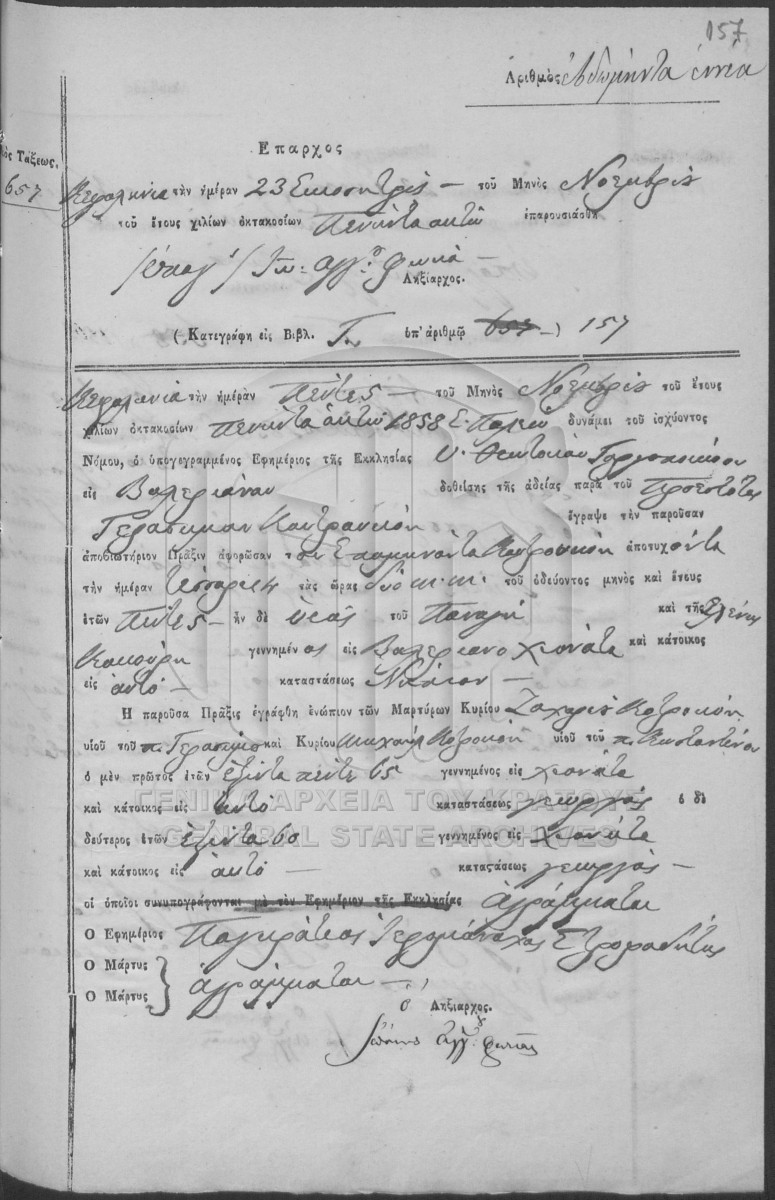 157
Αριθμὸς ἑβδομήντα ἐννέα
Επαρχος
ὸς Τάξεως.
657
Κεφαληνία τὴν ἡμέραν 23 Εικοσητρῖς — τοῦ Μηνὸς Νοεμβρίȣ
τοῦ ἔτους χιλίων ὀκτακοσίων Πενῆντα ὀκτὼ ἐπαρουσιάσθη
Ληξίαρχος.
(— Κατεγράφη εἰς Βιβλ. Γ. ὑπ' ἀριθμῷ 657 —) 157
Κεφαλωνία τὴν ἡμέραν Πέντε 5 — τοῦ Μηνὸς Νοεμβρίȣ τοῦ ἔτους
χιλίων ὀκτακοσίων Πενῆντα ὀκτὼ 1858 Ε. Παλαιὸ δυνάμει τοῦ ἰσχύοντος
Νόμου, ὁ ὑπογεγραμμένος Ἐφημέριος τῆς Ἐκκλησίας Υ. Θεοτόκου
εἰς Βαλεριάνον δοθείσης τῆς ἀδείας παρὰ τοῦ Προεστότος
Γεράσημον ἔγραψε τὴν παροῦσαν
ἀποβιωτήριον Πρᾶξιν ἀφορῶσαν τὸν Επαμηνόντα ἀποτυχόντα
τὴν ἡμέραν τέσσαρες 4 τὰς ὥρας δύο π.μ. τοῦ ὁδεύοντος μηνὸς καὶ ἔτους
ἐτῶν Πέντε 5 — ἦν δὲ ὑιὸς τοῦ Παναγῆ καὶ τῆς Ελένης
γεννημένος εἰς Βαλεριάνο Χιονάτα καὶ κάτοικος
εἰς ἀυτό — καταστάσεως Νήπιον —
Η παροῦσα Πρᾶξις ἐγράφθη ἐνώπιον τῶν Μαρτύρων Κυρίου Ζαχαρία
υἱοῦ τοῦ π. Γερασήμȣ καὶ Κυρίου Μιχαήλ υἱοῦ τοῦ π. Κωσταντίνου
ὁ μὲν πρῶτος ἐτῶν ἑξῆντα πέντε 65 γεννημένος εἰς Χιονάτα
καὶ κάτοικος εἰς ἀυτό καταστάσεως γεωργὸς ὁ δὲ
δεύτερος ἐτῶν ἑξῆντα 60 γεννημένος εἰς Χιονάτα
καὶ κάτοικος εἰς ἀυτό — καταστάσεως γεωργὸς —
οἱ ὁποῖοι συνυπογράφονται μὲ τὸν Ἐφημέριον τῆς Ἐκκλησίας ἀγράμματοι
Ο Ἐφημέριος Παγκράτιος Ιερομόναχος
Ο Μάρτυς
Ο Μάρτυς } ἀγράμματοι —
ὁ Ληξίαρχος.
ΓΕΝΙΚΑ ΑΡΧΕΙΑ ΤΟΥ ΚΡΑΤΟΥΣ
GENERAL STATE ARCHIVES